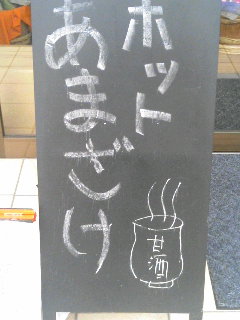 ホット
あまざけ
甘酒